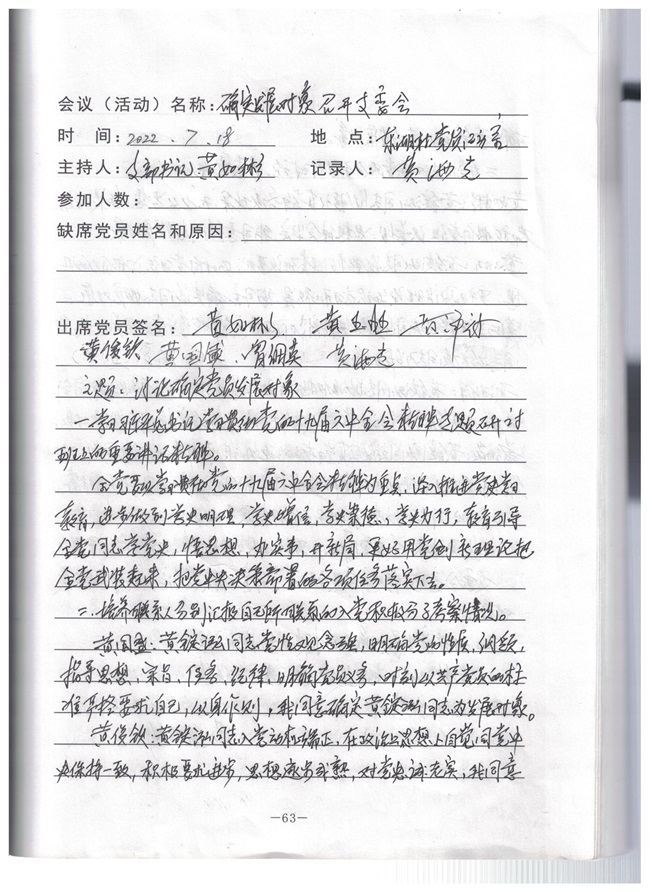 会议（活动）名称：确定发展对象召开支委会
时　间：2022.7.18　地　点：东湖村党员活动室
主持人：支部书记黄如彬　记录人：黄海克
参加人数：
缺席党员姓名和原因：
出席党员签名：黄如彬　黄玉
黄俊钦　黄国盛　黄海克
主题：讨论确定党员发展对象
一、学习习近平总书记学习贯彻党的十九届六中全会精神专题研讨
班上的重要讲话精神。
全党要以学习贯彻党的十九届六中全会精神为重点，深入推进党史学习
教育，进步做到学史明理，学史增信，学史崇德，学史力行，教育引导
全党同志学党史，悟思想，办实事，开新局，更好用党的创新理论把
全党武装起来，把党中央决策部署的各项任务落实下去。
二、培养联系人分别汇报自己所联系的入党积极分子考察情况。
黄国盛：黄锭泓同志党性观念强，明确党的性质，纲领，
指导思想，宗旨，任务，纪律，明确党员义务，时刻以共产党员的标
准严格要求自己，以身作则，我同意确定黄锭泓同志为发展对象。
黄俊钦：黄锭泓同志入党动机端正，在政治上思想上自觉同党中
央保持一致，积极要求进步，思想逐步成熟，对党忠诚老实，我同意
—63—